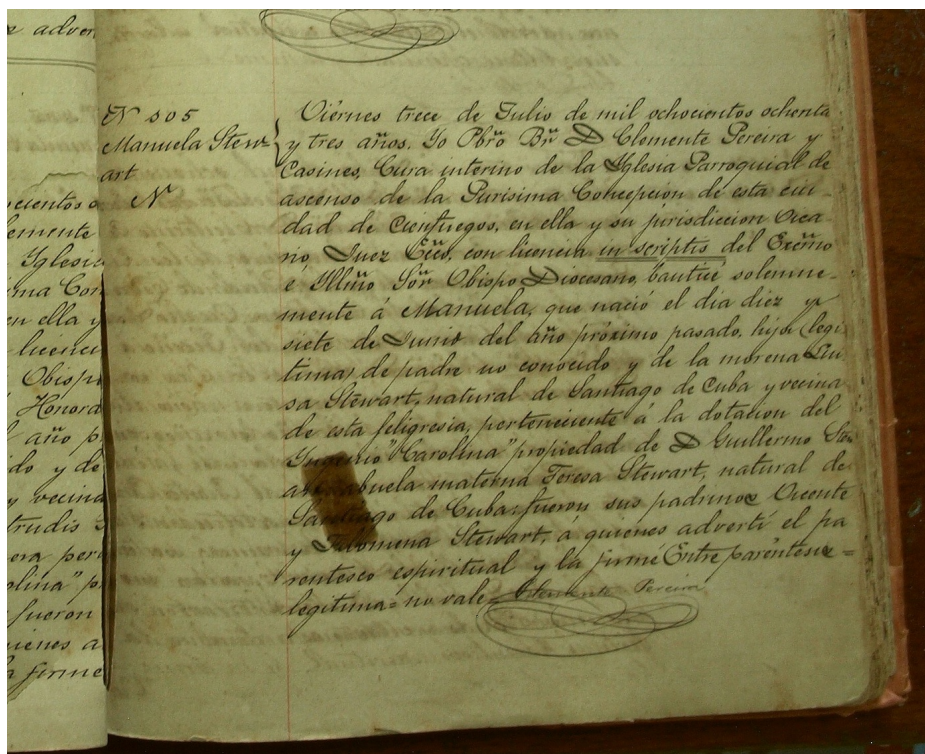 Nº 505
Manuela Stew-
art
N
Viernes trece de Julio de mil ochocientos ochenta
y tres años. Yo Pbrõ Br̃ D Clemente Pereira y
Casines, Cura interino de la Yglesia Parroquial de
ascenso de la Purisima Concepcion de esta ciu-
dad de Cienfuegos, en ella y su jurisdiccion Vica-
rio, Juez Ecc̃o, con licencia in scriptis del Excm̃o
é Yllm̃o Sõr Obispo Diocesano, bauticé solemne-
mente á Manuela, que nació el dia diez y
siete de Junio del año próximo pasado, hija (legi
tima) de padre no conocido y de la morena Lui
sa Stewart, natural de Santiago de Cuba y vecina
de esta feligresia, perteneciente á la dotacion del
Ingenio "Carolina" propiedad de D Guillermo Stew
art abuela materna Teresa Stewart, natural de
Santiago de Cuba: fueron sus padrinos Vicente
y Filomena Stewart, á quienes advertí el pa
rentesco espiritual y la firmé Entre paréntesis =
legitima = no vale = Clemente Pereira
e adver
cientos o
lemente
Yglesia
ma Con
en ella y
licenci
Obispo
Honora
l año p
do y de
y vecina
trudis
era per
olina" p
fueron
uienes a
a firme